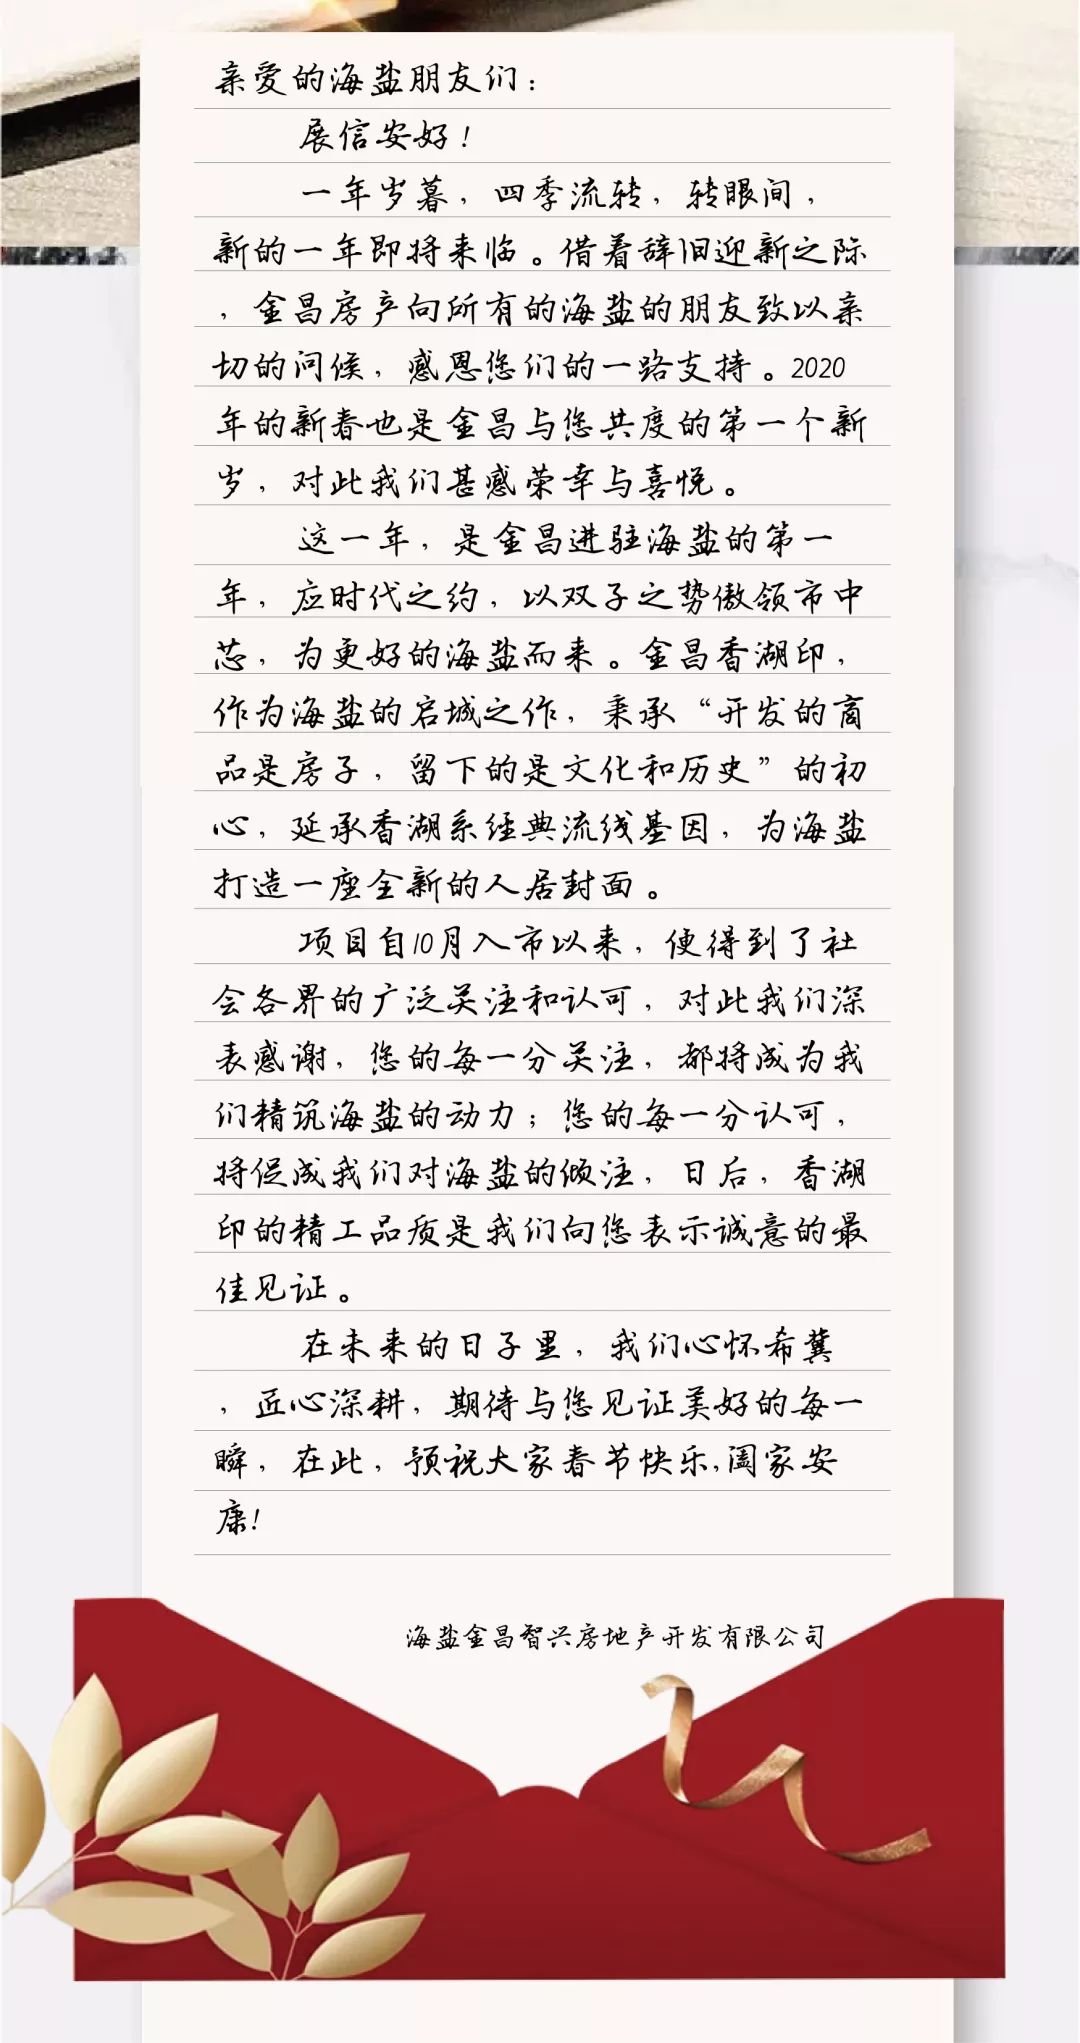 亲爱的海盐朋友们：
展信安好！
一年岁暮，四季流转，转眼间，
新的一年即将来临。借着辞旧迎新之际
，金昌房产向所有的海盐的朋友致以亲
切的问候，感恩您们的一路支持。2020
年的新春也是金昌与您共度的第一个新
岁，对此我们甚感荣幸与喜悦。
这一年，是金昌进驻海盐的第一
年，应时代之约，以双子之势傲领市中
芯，为更好的海盐而来。金昌香湖印，
作为海盐的启城之作，秉承“开发的商
品是房子，留下的是文化和历史”的初
心，延承香湖系经典流线基因，为海盐
打造一座全新的人居封面。
项目自10月入市以来，便得到了社
会各界的广泛关注和认可，对此我们深
表感谢，您的每一分关注，都将成为我
们精筑海盐的动力；您的每一分认可，
将促成我们对海盐的倾注，日后，香湖
印的精工品质是我们向您表示诚意的最
佳见证。
在未来的日子里，我们心怀希冀
，匠心深耕，期待与您见证美好的每一
瞬，在此，预祝大家春节快乐,阖家安
康!
海盐金昌智兴房地产开发有限公司